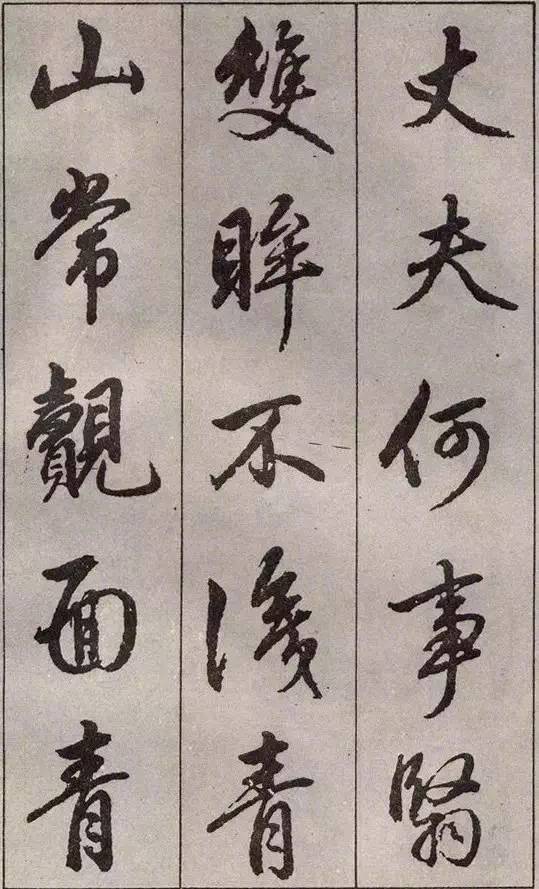 丈夫何事翳
雙眸不識青
山常覿面青